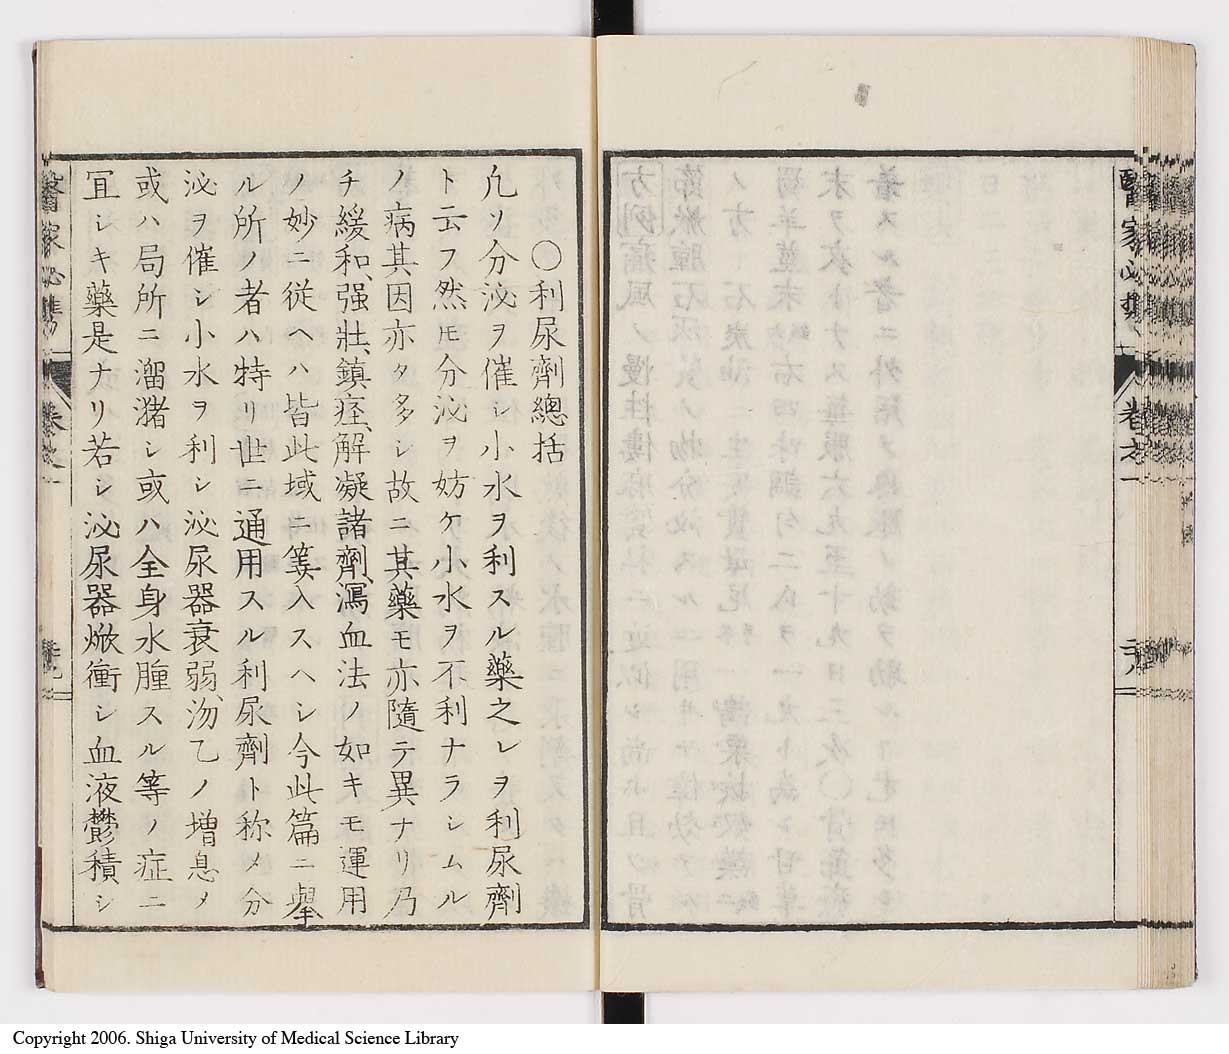 醫家必攜
卷之一
二十八
〇利尿劑總括
凢ソ分泌ヲ催シ小水ヲ利スル藥之レヲ利尿劑
ト云フ然ㇿ分泌ヲ妨ケ小水ヲ不利ナラシムル
ノ病其因亦タ多シ故ニ其藥モ亦隨テ異ナリ乃
チ緩和、强壯、鎮痙、解凝諸劑、瀉血法ノ如キモ運用
ノ妙ニ從ヘハ皆此域ニ筭入スヘシ今此篇ニ擧
ル所ノ者ハ特リ世ニ通用スル利尿劑ト称メ分
泌ヲ催シ小水ヲ利シ泌尿器衰弱、沕乙ノ増息メ
或ハ局所ニ溜瀦シ或ハ全身水腫スル等ノ症ニ
冝シキ藥是ナリ若シ泌尿器焮衝シ血液鬱積シ
醫家必攜
卷之一
Copyright 2006. Shiga University of Medical Science Library